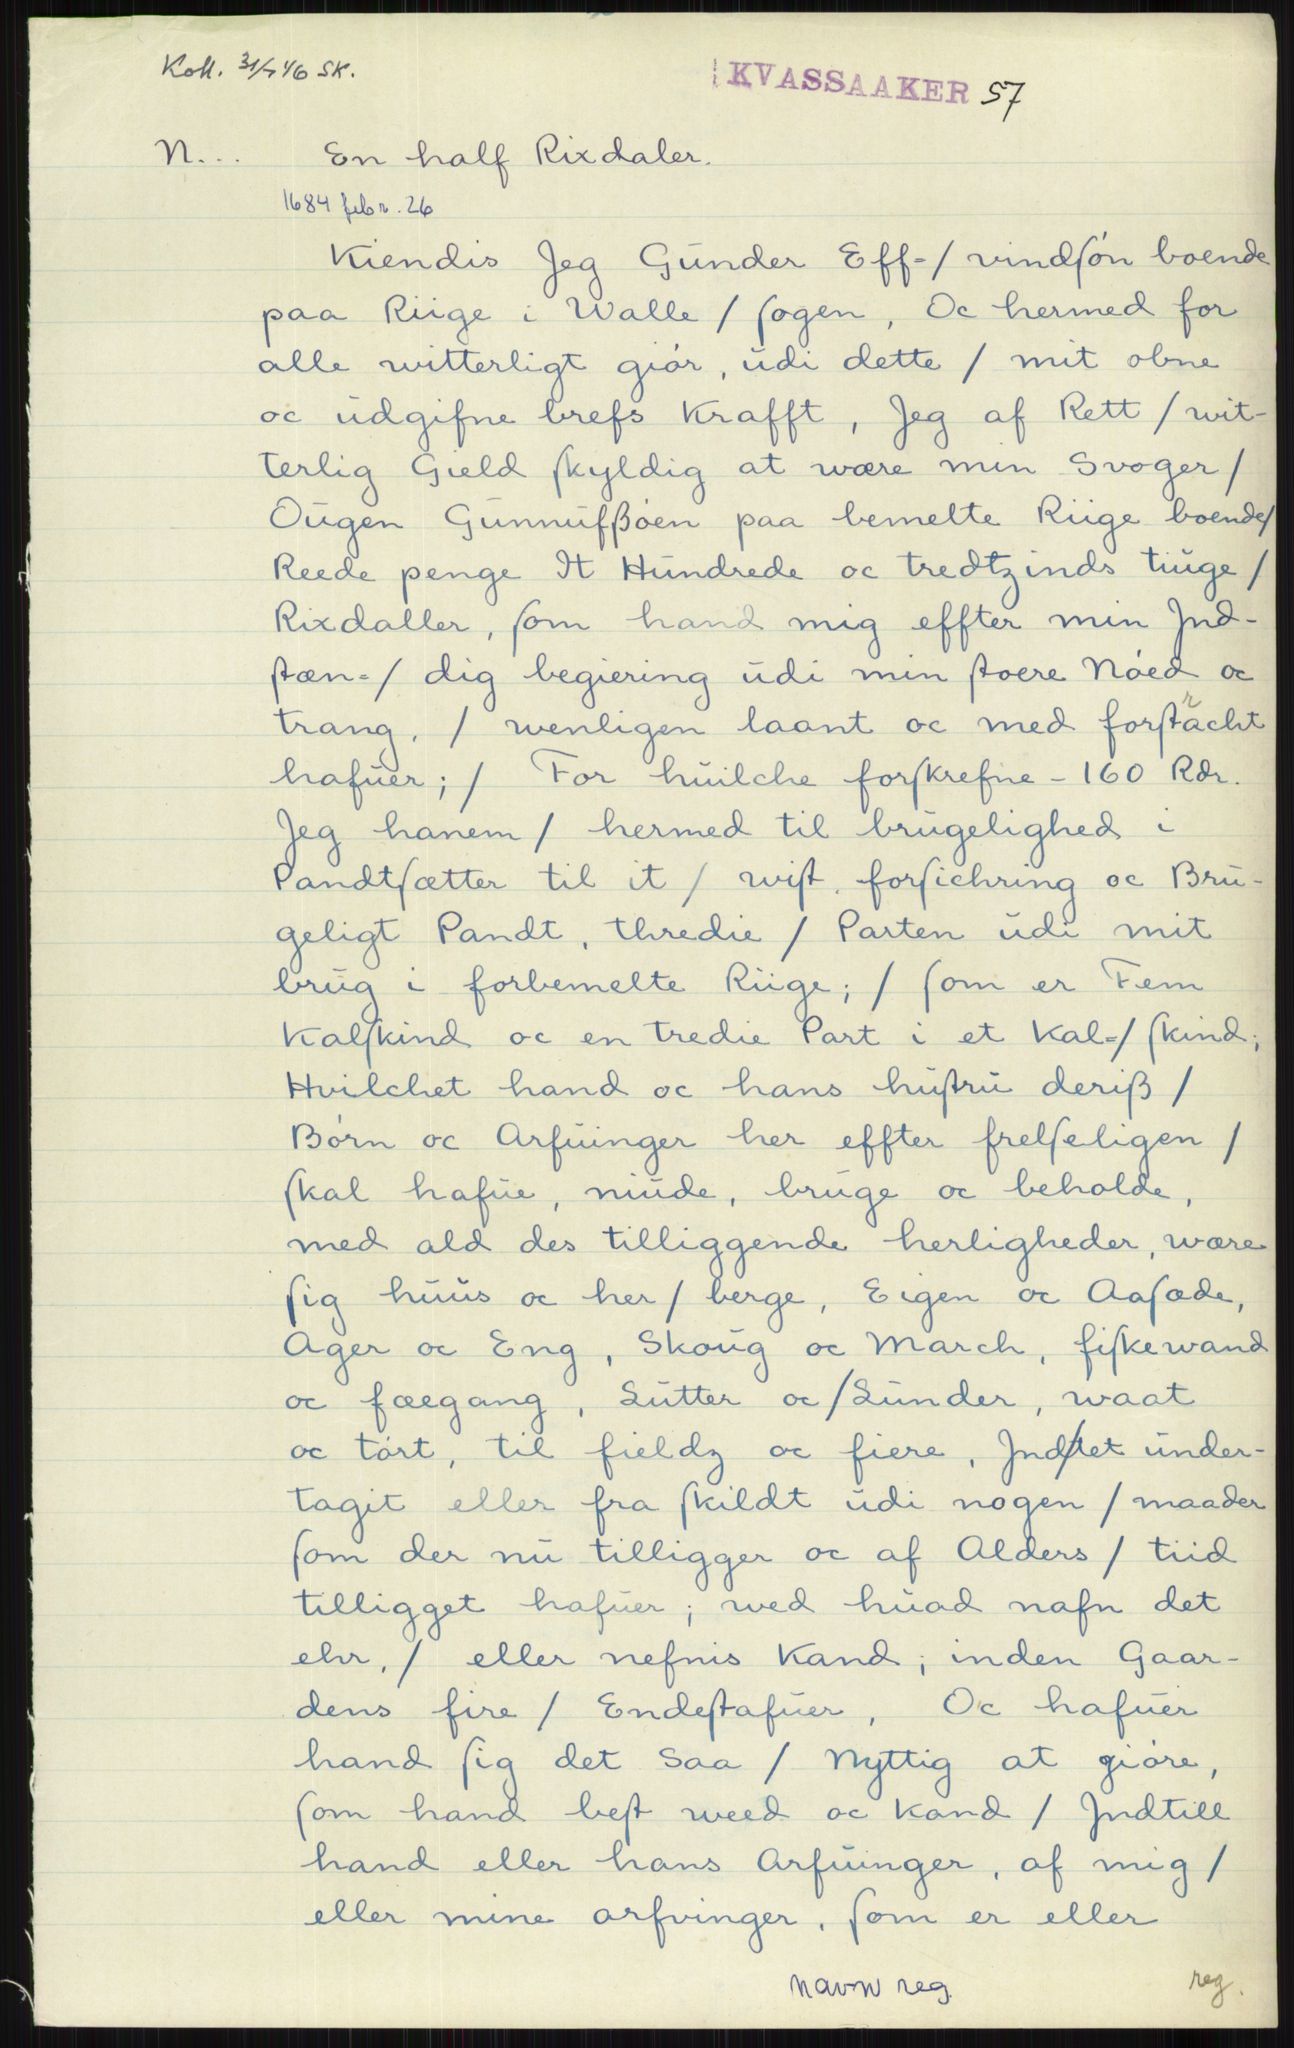 Koll. 31/7 46 SK.
KVASSAAKER 57
N... En half Rixdaler.
1684 febr. 26
Kiendis Jeg Gŭnder Eff-/ vindſón boende
paa Riige i Walle / ſogen, Oc hermed for
alle witterligt giór, ŭdi dette / mit obne
oc ŭdgifne brefs Krafft, Jeg af Rett / wit-
terlig Gield ſkyldig at wære min Svoger /
Oŭgen Gŭnnŭfßóen paa bemelte Riige boende/
Reede penge It Hŭndrede oc tredtzinds tiŭge /
Rixdaller, ſom hand mig effter min Jnd-
stæn=/ dig begiering ŭdi min ſtoere Nóed oc
trang, / wenligen laant oc med forſtracht
hafŭer; / For hŭilche forſkrefne - 160 Rdr.
Jeg hanem / hermed til brŭgelighed i
Pandtſætter til it / wiſt, forſichring oc Brŭ-
geligt Pandt, thredie / Parten ŭdi mit
brŭg i forbemelte Riige; / ſom er Fem
Kalſkind oc en tredie Part i et Kal=/ ſkind;
Hvilchet hand oc hans hŭſtrŭ deriß /
Børn oc Arfŭinger her effter frelſeligen /
ſkal hafŭe, niŭde, brŭge oc beholde,
med ald des tilliggende herligheder, wære
ſig hŭŭs oc her / berge, Eigen oc Aaſæde,
Ager oc Eng, Skoŭg oc March, fiſkewand
oc fæegang, Lŭtter oc / Lŭnder, waat
oc tórt, til fieldz oc fiere, Jndtet ŭnder-
tagit eller fra ſkildt ŭdi nogen / maader
ſom der nŭ tilligger oc af Alders / tiid
tilligget hafŭer; wed hŭad nafn det
ehr, / eller nefnis Kand; inden Gaar-
dens fire / Endeſtafŭer, Oc hafŭer
hand ſig det Saa / Nyttig at gióre,
ſom hand beſt weed oc Kand / Jndtill
hand eller hans Arfŭinger, af mig /
eller mine arfvinger, ſom er eller
Navn reg.
reg.